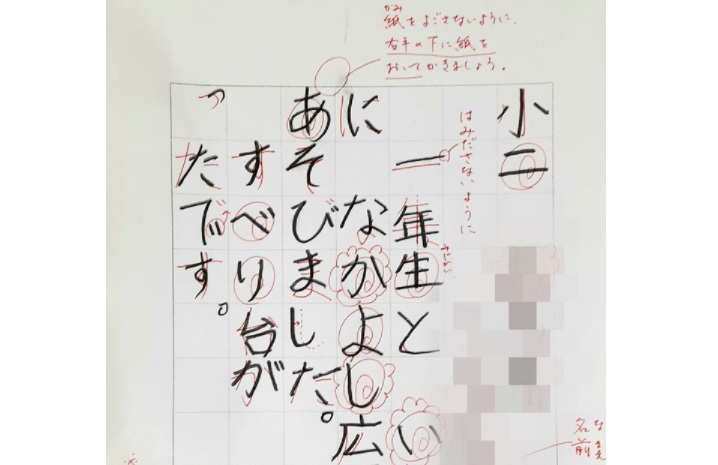 かみ
紙をよごさないように、
右手の下に紙を
おいてかきましょう。
小二
はみださないように
一年生とい
みじかい
に なかよし広
あそびました。
すべり台が
ったです。
なまえ
名前